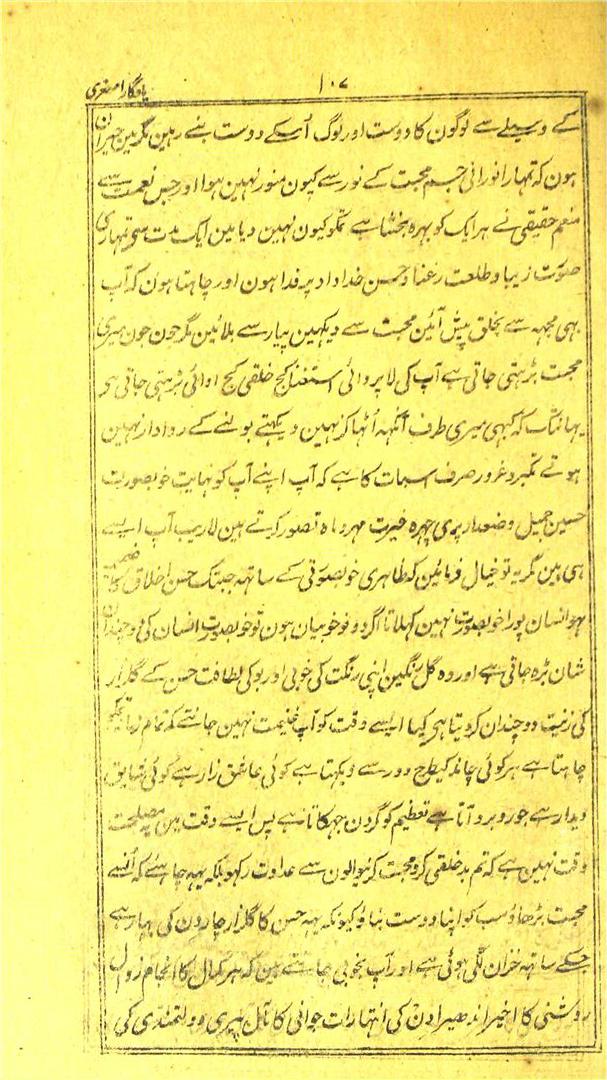 ۱۰۷
یادگار اصغری
کے وسیلے سے لوگون کا دوست اور لوگ اُسکے دوست بنے رہین مگر مین حیران
ہون کہ تمہارا نورانی جسم محبت کے نور سے کیون منور نہین ہوا اور جس نعمت سے
منعم حقیقی نے ہر ایک کو بہرہ بخشا ہے تمکو کیون نہین دیا مین ایک مدت سے تمہاری
صورت زیبا و طلعت رعنا و حسن خداداد پر فدا ہون اور چاہتا ہون کہ آپ
بہی مجہہ سے بخلق پیش آئین محبت سے دیکہین پیار سے بلائین مگر جون جون میری
محبت بڑہتی جاتی ہے آپ کی لا پروائی استغنا کج خلقی کج ادائی بڑہتی جاتی ہی
یہانتک کہ کبہی میری طرف آنکہہ اُٹہا کر نہین دیکہتے بولنے کے روادار نہین
ہوتے تکبر و غرور صرف اسبات کا ہے کہ آپ اپنے آپ کو نہایت خوبصورت
حسین جمیل وضعدار پری چہرہ غیرت مہر و ماہ تصور کرتے ہین لاریب آپ ایسے
ہی ہین مگر یہ تو خیال فرمائین کہ ظاہری خوبصورتی کے ساتہہ جبتک حسن اخلاق ضمیمہ
نہو انسان پورا خوبصورت نہین کہلاتا اگر دونو خوبیان ہون تو خوبصورت انسان کی دوچندان
شان بڑہ جاتی ہے اور وہ گل رنگین اپنی رنگت کی خوبی اور بو کی لطافت حسن کے گلزار
کی زینت دوچندان کر دیتا ہی کیا ایسے وقت کو آپ غنیمت نہین جانتے کہ تمام زمانہ
چاہتا ہے ہر کوئی چاند کیطرح دور سے دیکہتا ہے کوئی عاشق زار ہے کوئی شایق
دیدار ہے جو روبرو آتا ہے تعظیم کو گردن جہکاتا ہے پس ایسے وقت مین مصلحت
وقت نہین ہے کہ تم بد خلقی کرو محبت کرنیوالون سے عداوت رکہو بلکہ یہہ چاہئے کہ اُنسے
محبت بڑہاؤ سب کو اپنا دوست بناؤ کیونکہ یہہ حسن کا گلزار چار دن کی بہار ہے
جسکے ساتہہ خزان لگی ہوئی ہے اور آپ بخوبی جانتے ہین کہ ہر کمال کا انجام زوال
روشنی کا اخیر اندھیرا دن کی انتہا رات جوانی کا مآل پیری دولتمندی کی